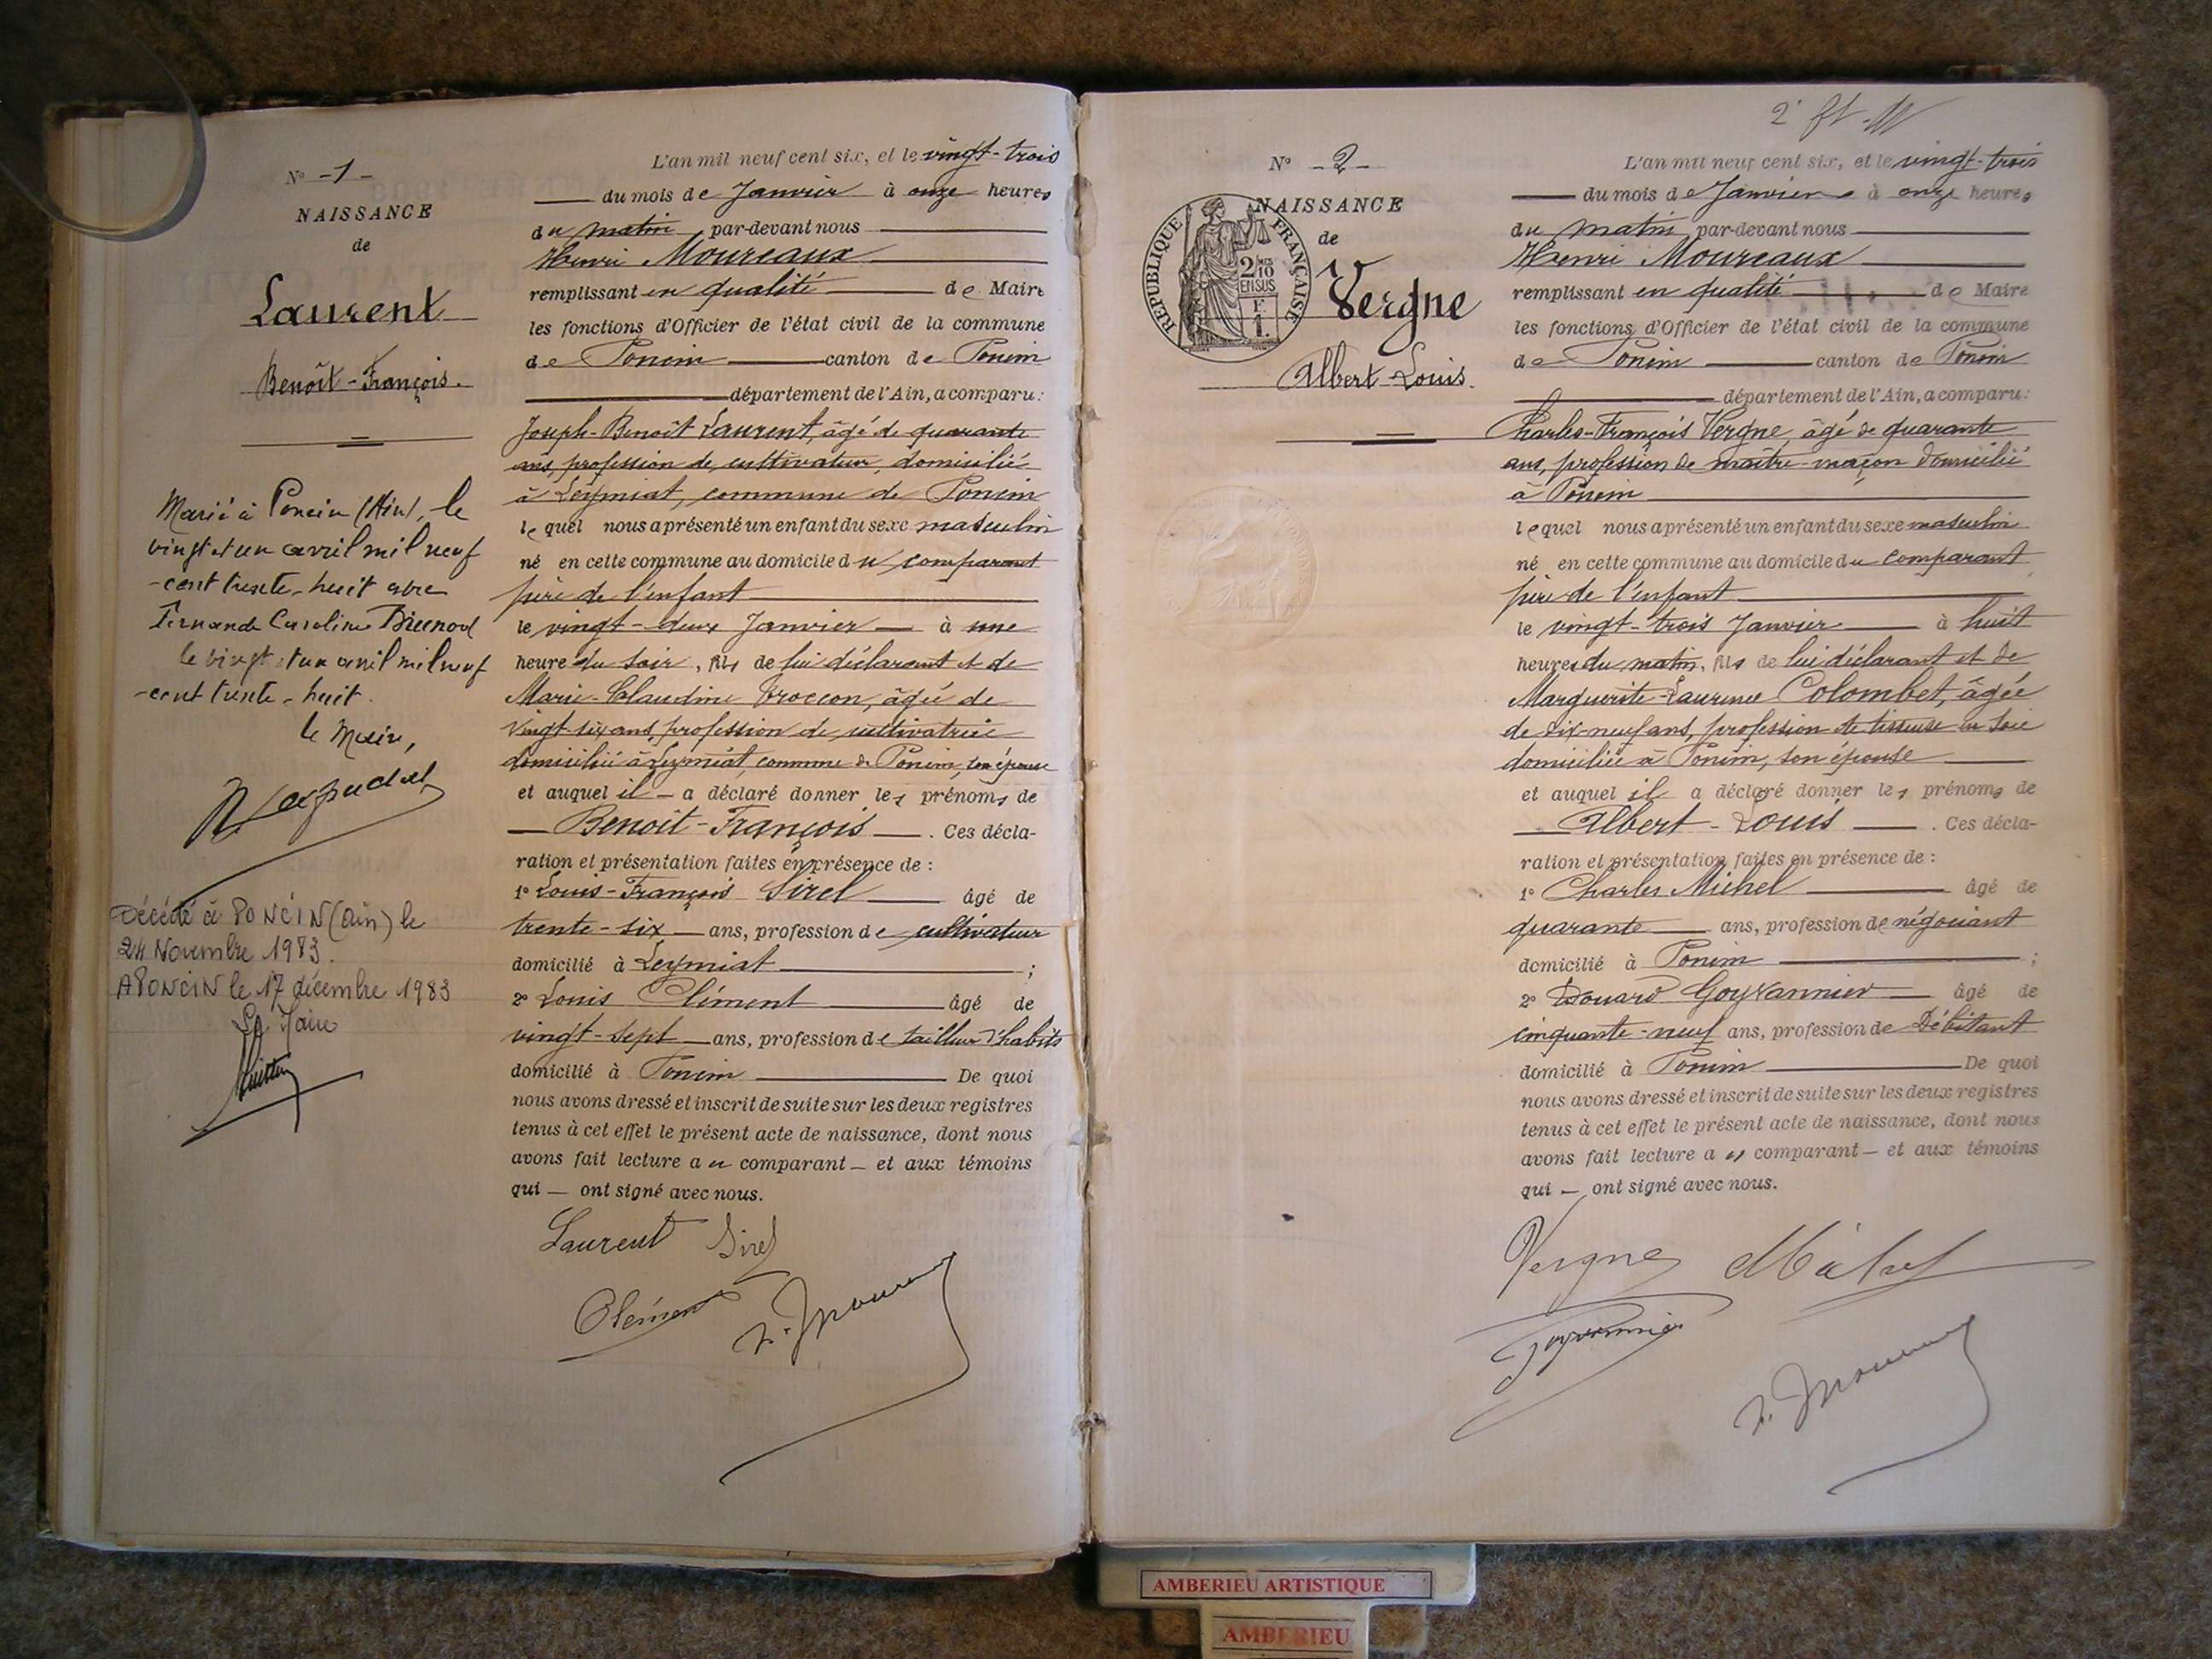 N° -1-
NAISSANCE
de
Laurent
Benoît-François.
Marié à Poncin (Ain), le
vingt et un avril mil neuf
-cent trente-huit avec
Fernande Caroline
le vingt et un avril mil neuf
-cent trente-huit.
le Maire,
Décédé à PONCIN (Ain) le
24 Novembre 1983.
A PONCIN le 17 décembre 1983
Le Maire
L'an mil neuf cent six, et le vingt-trois
du mois de Janvier à onze heures
du matin par-devant nous
Henri Moureaux
remplissant en qualité de Maire
les fonctions d'Officier de l'état civil de la commune
de Poncin canton de Poncin
département de l'Ain, a comparu:
Joseph-Benoît Laurent, âgé de quarante
ans, profession de cultivateur, domicilié
à Leymiat, commune de Poncin
lequel nous a présenté un enfant du sexe masculin
né en cette commune au domicile du comparant
père de l'enfant
le vingt-deux Janvier à une
heure du soir, fils de lui déclarant et de
Marie-Claudine Troccon, âgée de
vingt-six ans, profession de cultivatrice
domiciliée à Leymiat, commune de Poncin, son épouse
et auquel il a déclaré donner les prénoms de
Benoît-François. Ces décla-
ration et présentation faites en présence de :
1° Louis-François Sirel âgé de
trente-six ans, profession de cultivateur
domicilié à Leymiat ;
2° Louis Clément âgé de
vingt-sept ans, profession de tailleur d'habits
domicilié à Poncin De quoi
nous avons dressé et inscrit de suite sur les deux registres
tenus à cet effet le présent acte de naissance, dont nous
avons fait lecture au comparant et aux témoins
qui ont signé avec nous.
Laurent Sirel
Clément H. Moureaux
2e ft
N° -2-
NAISSANCE
de
Vergne
Albert-Louis.
RÉPUBLIQUE FRANÇAISE
2/10 EN SUS
F 1.
L'an mil neuf cent six, et le vingt-trois
du mois de Janvier à onze heures
du matin, par-devant nous
Henri Moureaux
remplissant en qualité de Maire
les fonctions d'Officier de l'état civil de la commune
de Poncin canton de Poncin
département de l'Ain, a comparu:
Charles-François Vergne, âgé de quarante
ans, profession de maître-maçon domicilié
à Poncin
lequel nous a présenté un enfant du sexe masculin
né en cette commune au domicile du comparant
père de l'enfant
le vingt-trois Janvier à huit
heures du matin, fils de lui déclarant et de
Marguerite-Laurence Colombet, âgée
de dix-neuf ans, profession de tisseuse en soie
domiciliée à Poncin, son épouse
et auquel il a déclaré donner les prénoms de
Albert-Louis. Ces décla-
ration et présentation faites en présence de :
1° Charles Michel âgé de
quarante ans, profession de négociant
domicilié à Poncin ;
2° Edouard Goyvannier âgé de
cinquante-neuf ans, profession de Débitant
domicilié à Poncin De quoi
nous avons dressé et inscrit de suite sur les deux registres
tenus à cet effet le présent acte de naissance, dont nous
avons fait lecture au comparant et aux témoins
qui ont signé avec nous.
Vergne Michel
Goyvannier
H. Moureaux
AMBERIEU ARTISTIQUE
AMBERIEU